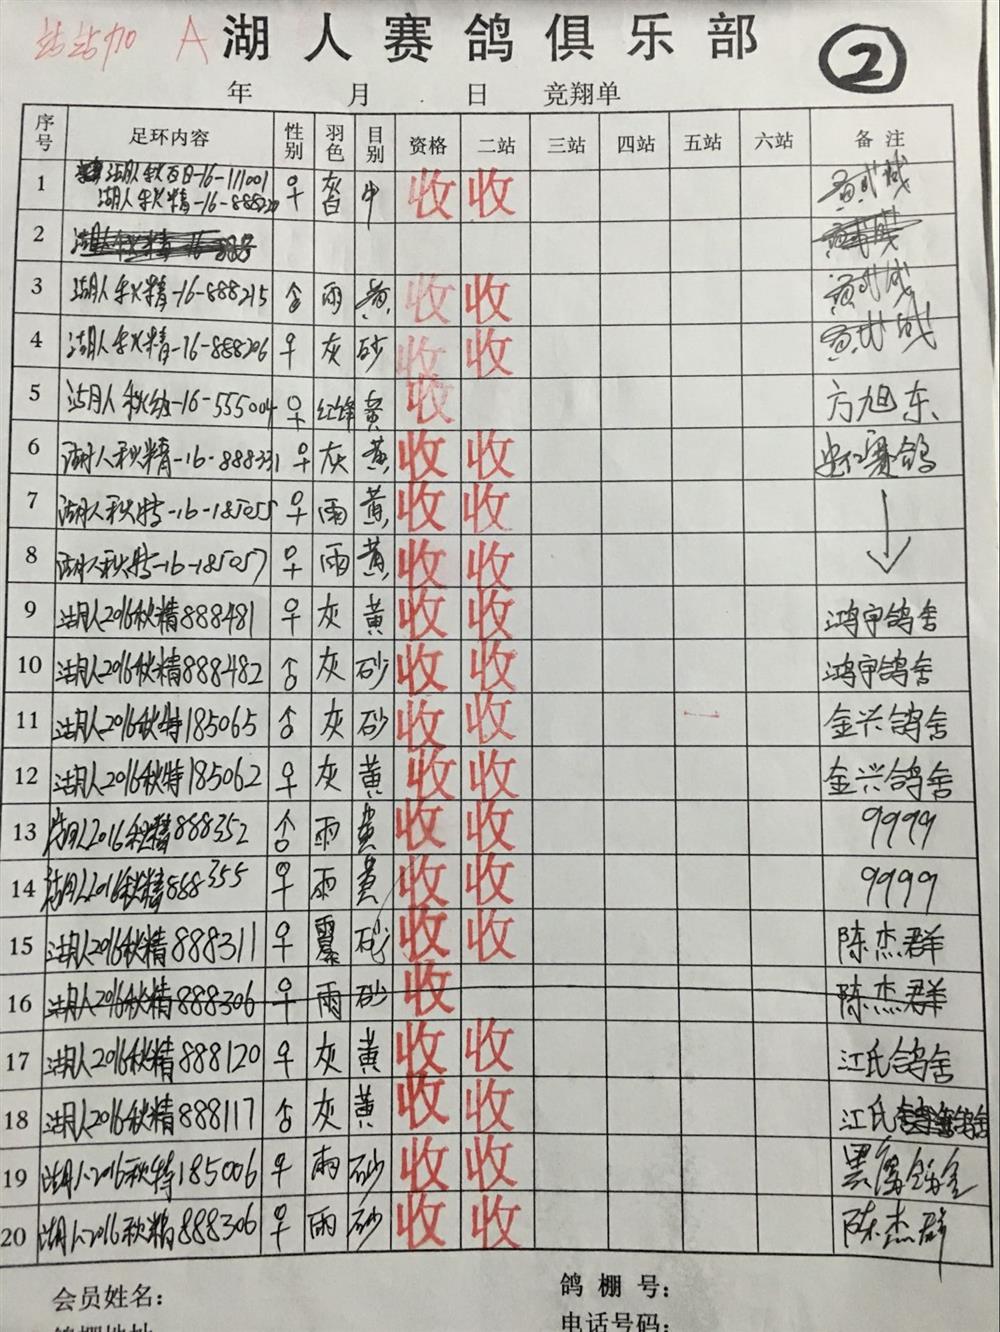 站站加 A 湖人赛鸽俱乐部 ②
年 月 日 竞翔单
序号 足环内容 性别 羽色 目别 资格 二站 三站 四站 五站 六站 备注
1 湖人秋百日-16-111001
湖人秋精-16-888220 ♀ 灰白 牛 收 收
2
3 湖人秋精-16-888215 ♂ 雨 黄 收 收
4 湖人秋精-16-888206 ♀ 灰 砂 收 收
5 湖人秋-16-555004 ♀ 红绛 黄 收 方旭东
6 湖人秋精-16-888331 ♀ 灰 黄 收 收 赛鸽
7 湖人秋特-16-185055 ♀ 雨 黄 收 收
8 湖人秋特-16-185057 ♀ 雨 黄 收 收
9 湖人2016秋精888481 ♀ 灰 黄 收 收 鸿宇鸽舍
10 湖人2016秋精888482 ♂ 灰 砂 收 收 鸿宇鸽舍
11 湖人2016秋特185065 ♂ 灰 砂 收 收 金兴鸽舍
12 湖人2016秋特185062 ♀ 灰 黄 收 收 金兴鸽舍
13 湖人2016秋精888352 ♂ 雨 黄 收 收 9999
14 湖人2016秋精888355 ♀ 雨 黄 收 收 9999
15 湖人2016秋精888311 ♀ 砂 收 收 陈杰群
16 湖人2016秋精888306 ♀ 雨 砂 收 陈杰群
17 湖人2016秋精888120 ♀ 灰 黄 收 收 江氏鸽舍
18 湖人2016秋精888117 ♂ 灰 黄 收 收 江氏鸽舍
19 湖人2016秋特185006 ♀ 雨 砂 收 收
20 湖人2016秋精888306 ♀ 雨 砂 收 收 陈杰群
会员姓名： 鸽棚号：
鸽棚地址 电话号码：